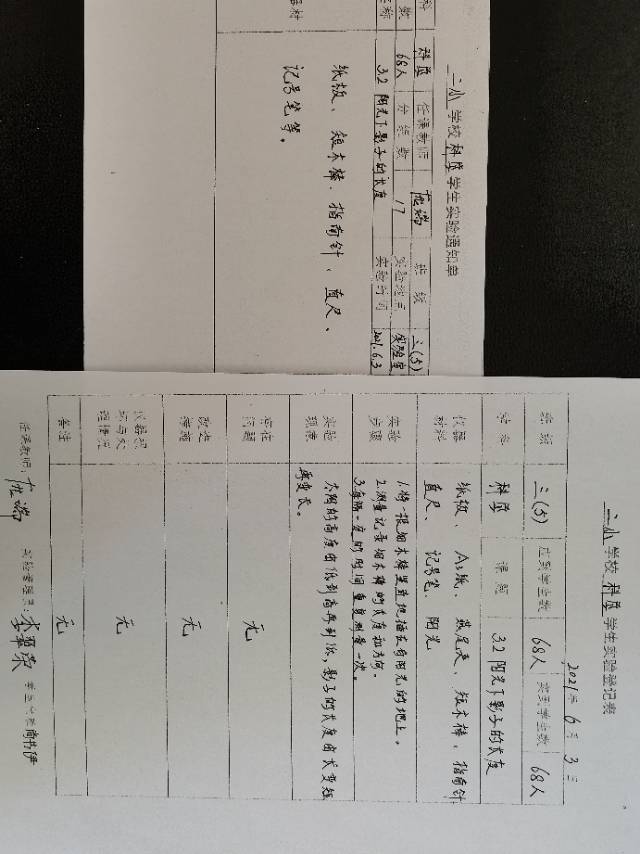 二小学校科学学生实验通知单
科
科学
任课教师
班级
三(5)
数
68人
分组数
17
实验地点
实验室
称
3.2 阳光下影子的长度
实验时间
2021.6.3
器材
纸板、短木棒、指南针、直尺、
记号笔等。
二小学校科学学生实验登记表
2021年 6月 3日
班级
三(5)
应到学生数
68人
实到学生数
68人
学科
科学
课题
3.2 阳光下影子的长度
仪器
材料
纸板、A3纸、燕尾夹、短木棒、指南针
直尺、记号笔、阳光
实验
步骤
1.将一根细木棒竖直地插在有阳光的地上。
2.测量记录细木棒的长度和方向。
3.每隔一定的时间重复测量一次。
实验
现象
太阳的高度由低到高再到低,影子的长度由长变短
再变长。
存在
问题
无
改进
措施
无
仪器损
坏与处
理情况
无
备注
无
任课教师: 实验管理员: 李翠荣